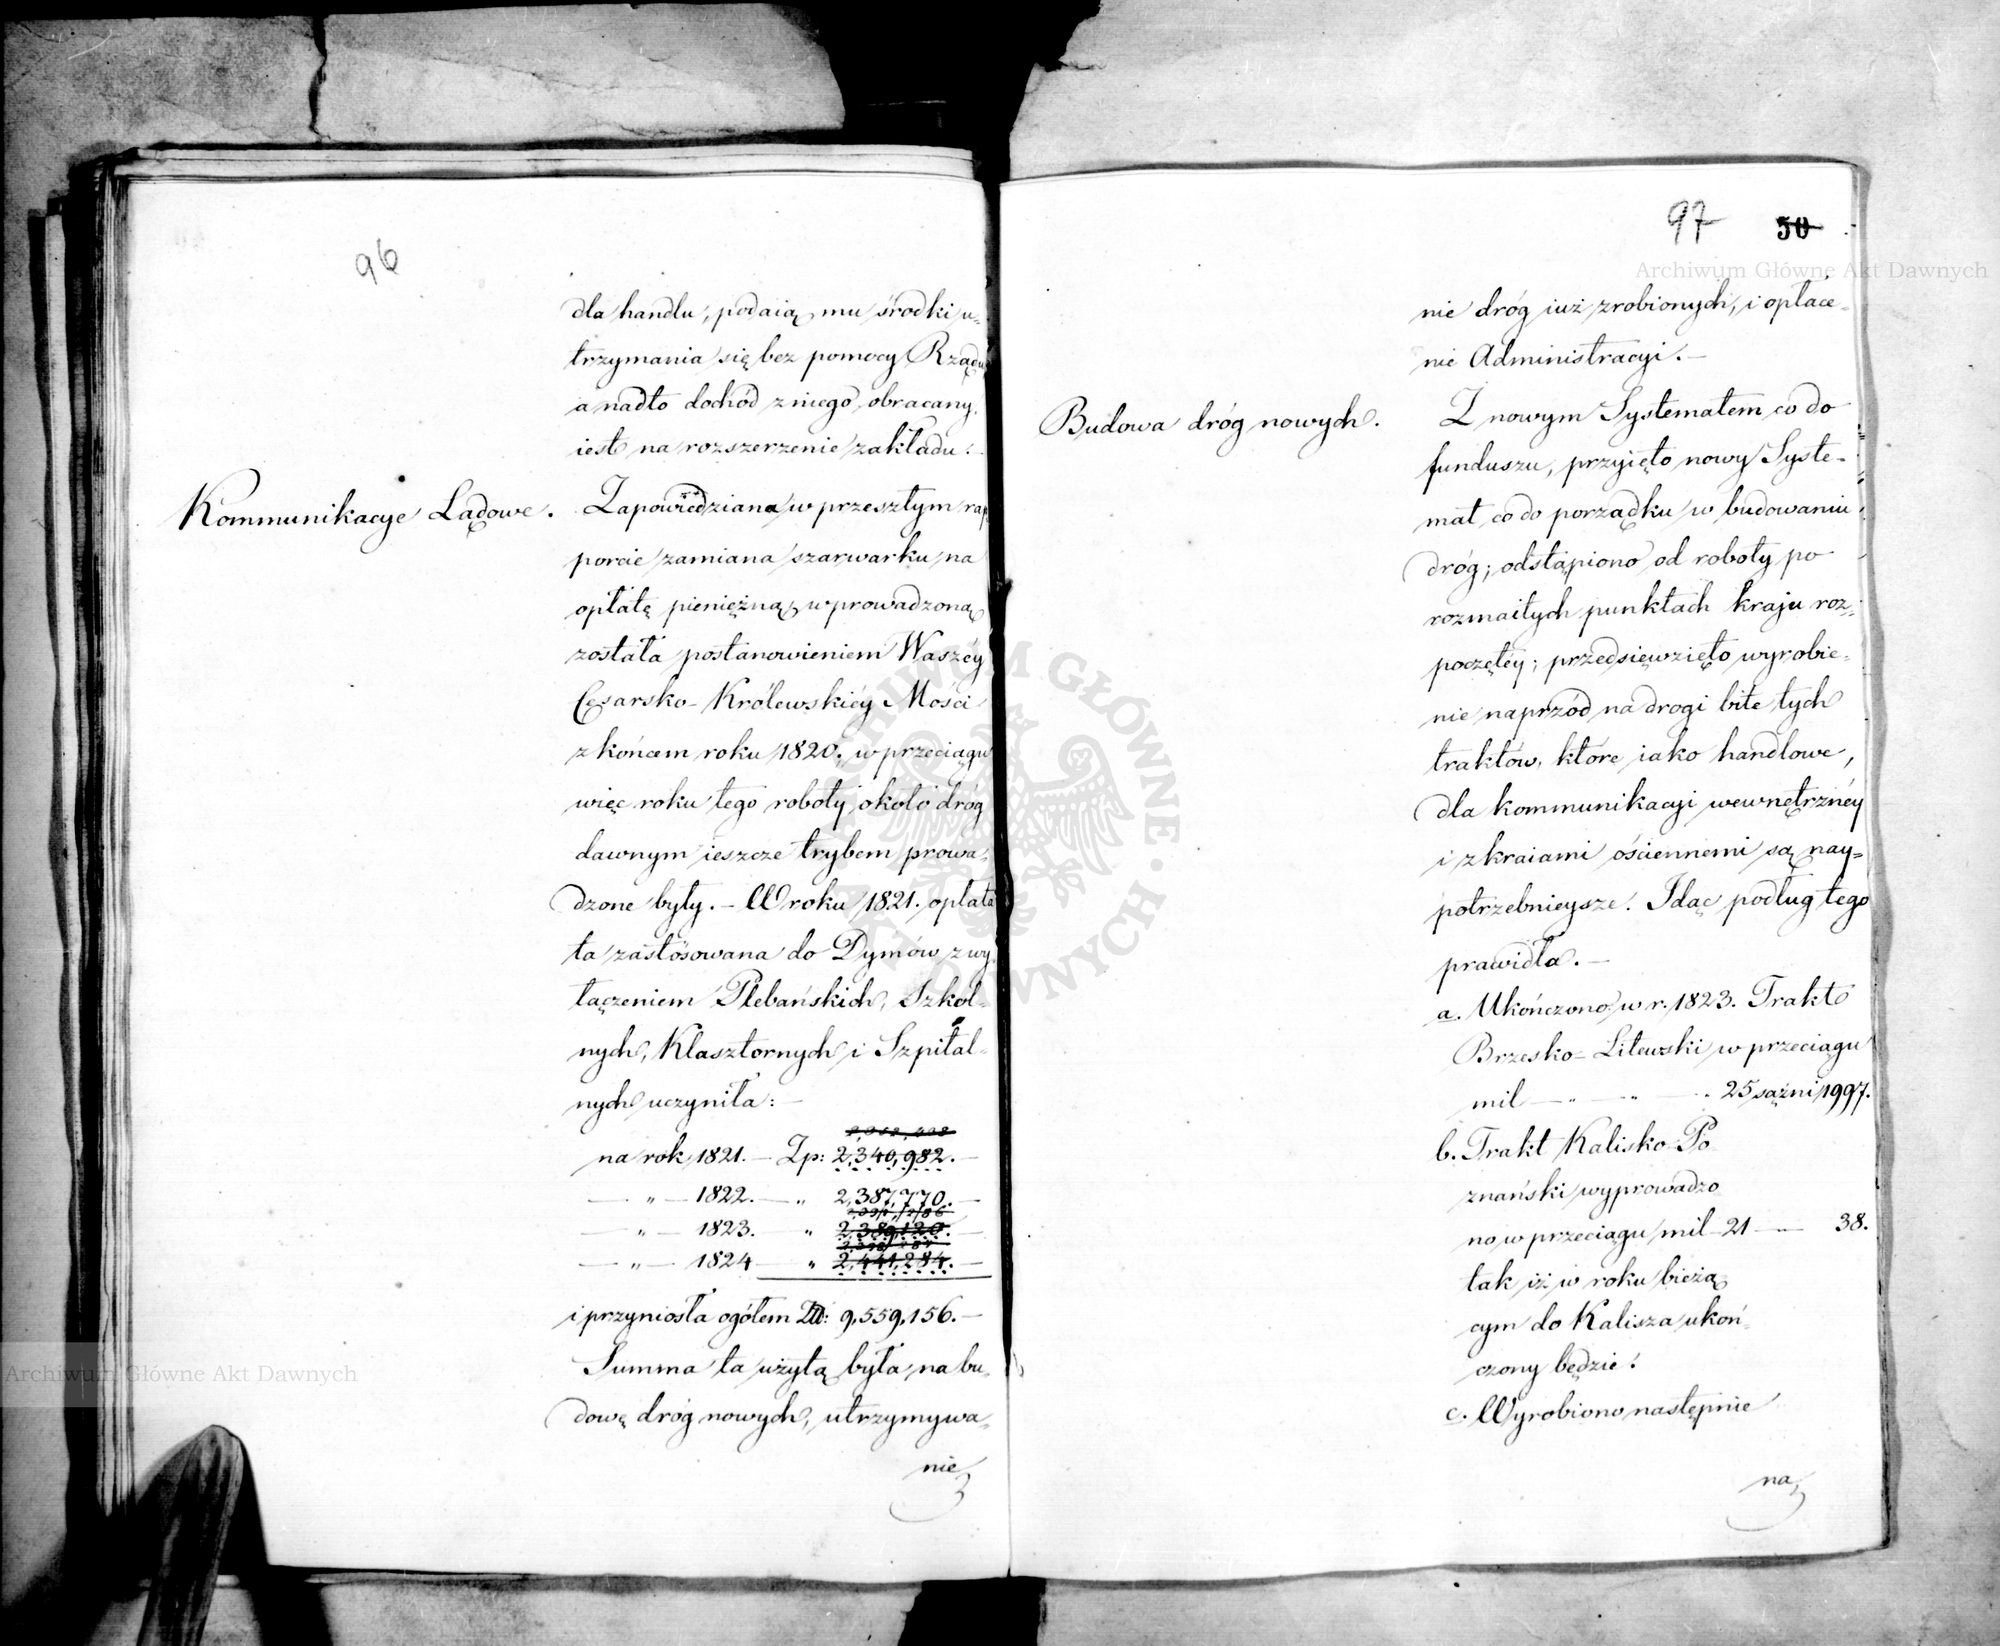 96
dla handlu, podaią mu środki u-
trzymania się bez pomocy Rządu
a nadto dochód z niego obracany
iest na rozszerzenie zakładu.-
Kommunikacye Lądowe.
Zapowiedziana w przeszłym rap
porcie zamiana szarwarku na
opłatę pieniężną, wprowadzoną
została postanowieniem Waszéy
Cesarsko-Królewskiéy Mości
z końcem roku 1820. w przeciągu
więc roku tego roboty około dróg
dawnym ieszcze trybem prowa-
dzone były. – W roku 1821. opłata
ta zastósowana do Dymów z wy
łączeniem Plebańskich, Szkol-
nych, Klasztornych i Szpital-
nych uczyniła: –
na rok 1821. – Zp: 2,340,982. –
— „ — 1822. — „ 2,387,770. –
— „ — 1823. „ 2,389,120. –
— „ — 1824 — „ 2,441,284. –
i przyniosła ogółem 9,559,156. –
Summa ta użytą była na bu-
dowę dróg nowych, utrzymywa-
nie
97 50
nie dróg iuż zrobionych, i opłace-
nie Administracyi. –
Budowa dróg nowych.
Z nowym Systematem co do
funduszu, przyięto nowy Syste-
mat co do porządku w budowaniu
dróg; odstąpiono od roboty po
rozmaitych punktach kraju roz-
poczętéy; przedsięwzięto wyrobie-
nie naprzód na drogi bite tych
traktów, które iako handlowe,
dla kommunikacyi wewnętrznéy
i z kraiami ościennemi są nay-
potrzebnieysze. Idąc podług tego
prawidła. –
a. Ukończono w r. 1823. Trakt
Brzesko-Litewski w przeciągu
mil — „ — „ — „ 25 sążni 1997.
b. Trakt Kalisko-Po
znański wyprowadzo
no w przeciągu mil – 21 — 38.
tak iż w roku bieżą
cym do Kalisza ukoń-
czony będzie.
c. Wyrobiono następnie
na
Archiwum Główne Akt Dawnych
Archiwum Główne Akt Dawnych